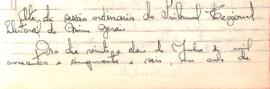 Ata da sessão ordinária do Tribunal Regional
Eleitoral de Minas Gerais
Aos dias vinte e dois de Junho de mil
novecentos e cinquenta e seis, na sala de